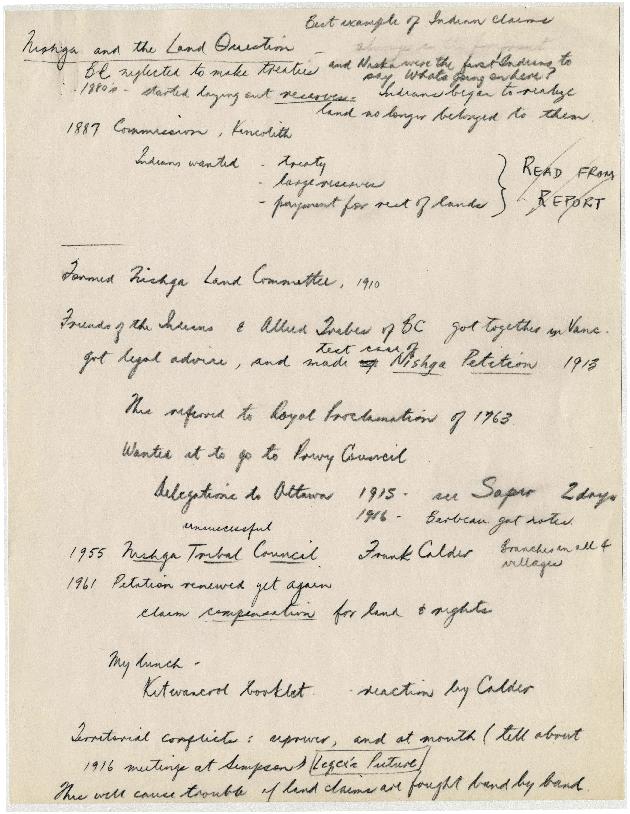 Best example of Indian claims
Nishga and the Land Question -
BC neglected to make treaties and Niska were the first Indians to
say, What's going on here?
1880's - started laying out reserves. Indians began to realize
land no longer belonged to them.
1887 Commission, Kincolith
Indians wanted - treaty
- large reserves
- payment for rest of lands
READ FROM
REPORT
Formed Nishga Land Committee, 1910
Friends of the Indians & Allied Tribes of BC got together in Vanc.
got legal advise, and made test case of Nishga Petition 1913
This referred to Royal Proclamation of 1763
Wanted it to go to Privy Council
Delegations to Ottawa 1915 - see Sapir 2 days
1916 - Barbeau got notes
unsuccessful
1955 Nishga Tribal Council Frank Calder Branches in all 4
villages
1961 Petation renewed yet again
claim compensation for land & rights
My hunch -
Kitwancool booklet - reaction by Calder
Territorial conflicts: upriver, and at mouth (tell about
1916 meetings at Simpson) Legex's Picture
This will cause trouble if land claims are fought band by band.